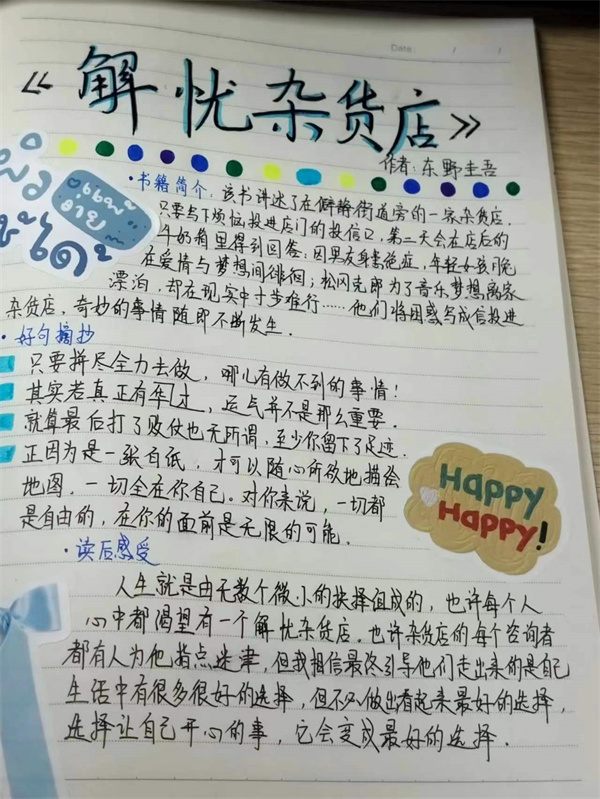 Date / /
《解忧杂货店》
作者:东野圭吾
·书籍简介:该书讲述了在僻静街道旁的一家杂货店.
只要写下烦恼投进店门的投信口,第二天会在店后的
牛奶箱里得到回答:因男友身患绝症,年轻女孩
在爱情与梦想间徘徊;松冈克郎为了音乐梦想离家
漂泊,却在现实中寸步难行……他们将困惑写成信投进
杂货店,奇妙的事情随即不断发生.
·好句摘抄
只要拼尽全力去做,哪儿有做不到的事情!
其实若真正有,运气并不是那么重要.
就算最后打了败仗也无所谓,至少你留下了足迹.
正因为是一张白纸,才可以随心所欲地描绘
地图.一切全在你自己.对你来说,一切都
是自由的,在你的面前是无限的可能.
HAPPY
HAPPY!
·读后感受
人生就是由无数个微小的抉择组成的,也许每个人
心中都渴望有一个解忧杂货店.也许杂货店的每个咨询者
都有人为他指点迷津,但我相信最终引导他们走出来的是自己
生活中有很多很好的选择,但不必做出看起来最好的选择,
选择让自己开心的事,它会变成最好的选择.